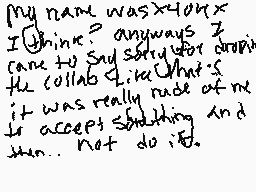 My name was x4onx
I think? anyways I
came to say sorry for dropin
the collab Like that's
it was really rude of me
to accept something and
then.. not do it.